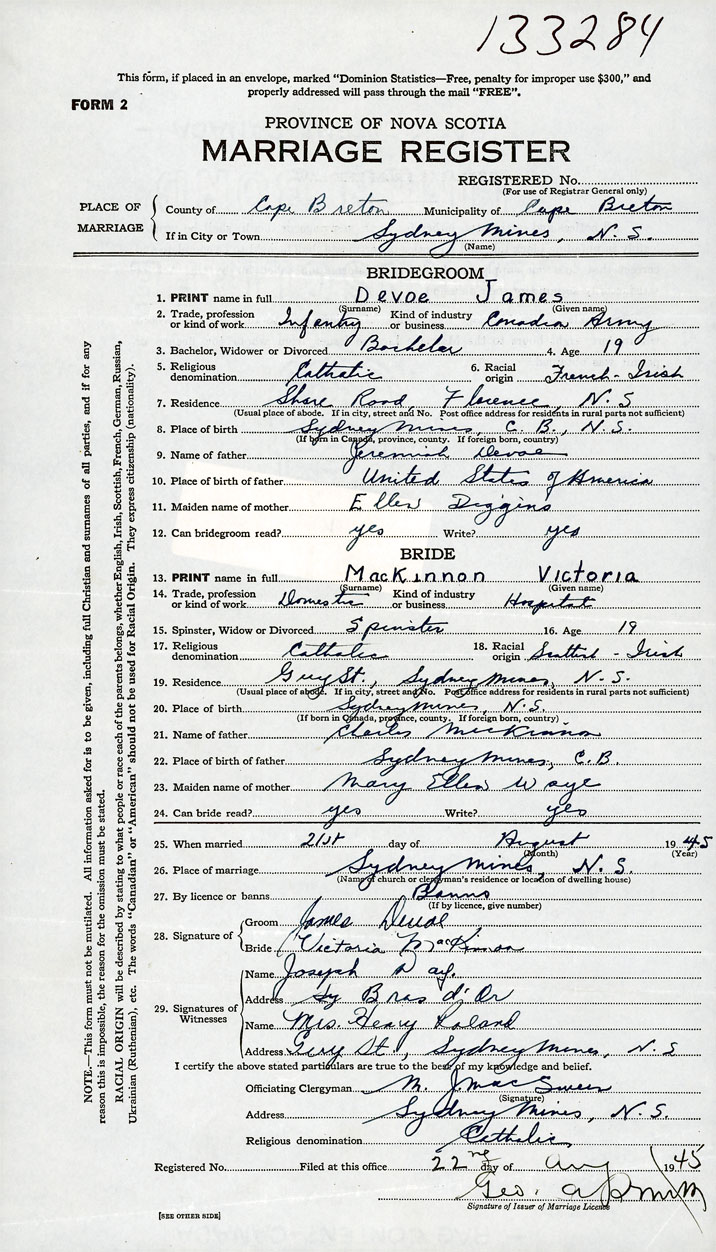 133284
This form, if placed in an envelope, marked "Dominion Statistics—Free, penalty for improper use $300," and
properly addressed will pass through the mail "FREE".
FORM 2
PROVINCE OF NOVA SCOTIA
MARRIAGE REGISTER
REGISTERED No.
(For use of Registrar General only)
PLACE OF MARRIAGE
County of Cape Breton Municipality of Cape Breton
If in City or Town Sydney Mines, N.S.
(Name)
BRIDEGROOM
1. PRINT name in full Devoe James
(Surname) (Given name)
2. Trade, profession or kind of work Infantry Kind of industry or business Canadian Army
3. Bachelor, Widower or Divorced Bachelor 4. Age 19
5. Religious denomination Catholic 6. Racial origin French-Irish
7. Residence Shore Road, Florence, N.S
(Usual place of abode. If in city, street and No. Post office address for residents in rural parts not sufficient)
8. Place of birth Sydney Mines, C.B., N.S.
(If born in Canada, province, county. If foreign born, country)
9. Name of father Jeremiah Devoe
10. Place of birth of father United States of America
11. Maiden name of mother Ellen Diggins
12. Can bridegroom read? yes Write? yes
BRIDE
13. PRINT name in full MacKinnon Victoria
(Surname) (Given name)
14. Trade, profession or kind of work Domestic Kind of industry or business Hospital
15. Spinster, Widow or Divorced Spinster 16. Age 19
17. Religious denomination Catholic 18. Racial origin Scottish-Irish
19. Residence Guy St., Sydney Mines, N.S.
(Usual place of abode. If in city, street and No. Post office address for residents in rural parts not sufficient)
20. Place of birth Sydney Mines, N.S.
(If born in Canada, province, county. If foreign born, country)
21. Name of father Charles MacKinnon
22. Place of birth of father Sydney Mines, C.B.
23. Maiden name of mother Mary Ellen Waye
24. Can bride read? yes Write? yes
25. When married 21st day of August 1945
(Month) (Year)
26. Place of marriage Sydney Mines, N.S.
(Name of church or clergyman's residence or location of dwelling house)
27. By licence or banns Banns
(If by licence, give number)
28. Signature of
Groom James Devoe
Bride Victoria MacKinnon
29. Signatures of Witnesses
Name Joseph
Address Sy Bras d'Or
Name Mrs. Henry
Address Guy St., Sydney Mines, N.S
I certify the above stated particulars are true to the best of my knowledge and belief.
Officiating Clergyman M. J. MacSween
(Signature)
Address Sydney Mines, N.S.
Religious denomination Catholic
Registered No. Filed at this office 22nd day of Aug 1945
Geo. A
Signature of Issuer of Marriage License
[SEE OTHER SIDE]
NOTE.—This form must not be mutilated. All information asked for is to be given, including full Christian and surnames of all parties, and if for any
reason this is impossible, the reason for the omission must be stated.
RACIAL ORIGIN will be described by stating to what people or race each of the parents belongs, whether English, Irish, Scottish, French, German, Russian,
Ukrainian (Ruthenian), etc. The words "Canadian" or "American" should not be used for Racial Origin. They express citizenship (nationality).